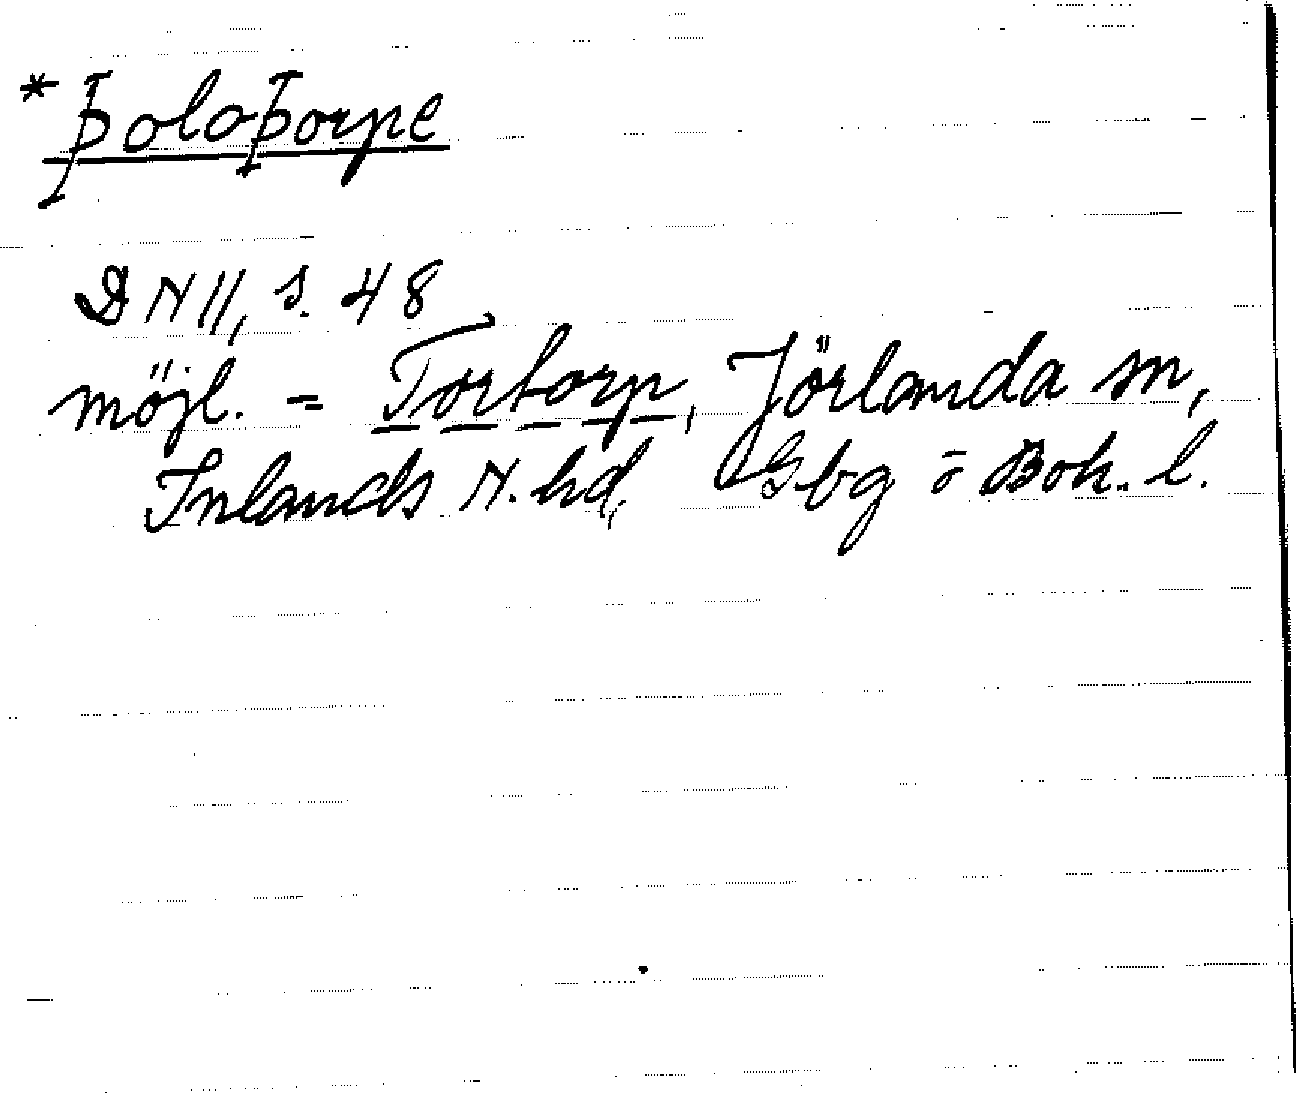 *þoloþorpe
DN II, s. 48
möjl. = Tortorp, Jörlanda sn,
Inlands N. hd, Gbg o Boh. l.